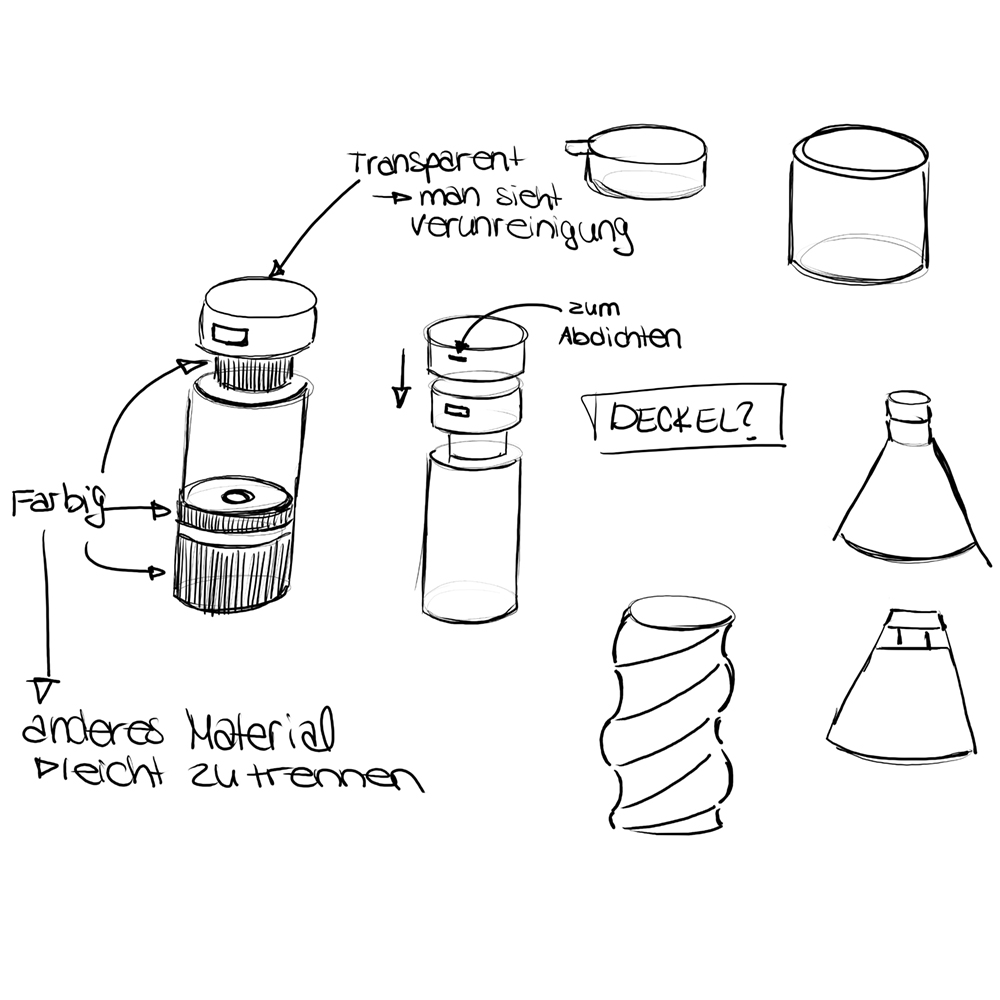 Transparent
→ man sieht
verunreinigung
zum
Abdichten
DECKEL?
Farbig
anderes Material
▷leicht zu trennen